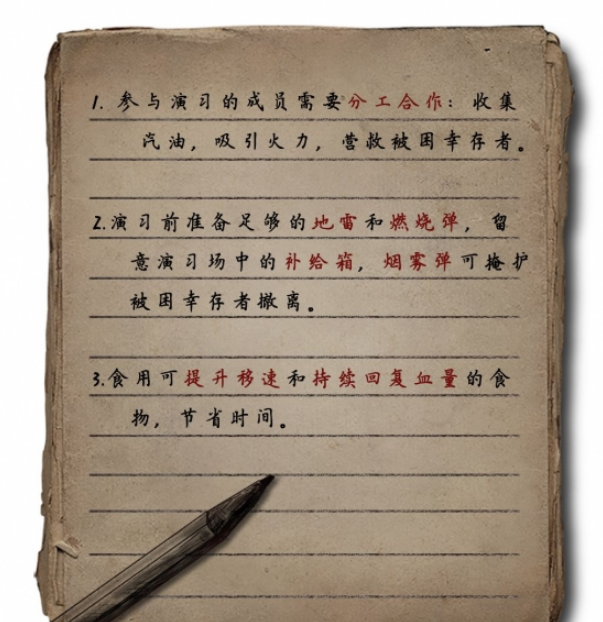 1. 参与演习的成员需要分工合作：收集
汽油，吸引火力，营救被困幸存者。
2.演习前准备足够的地雷和燃烧弹，留
意演习场中的补给箱，烟雾弹可掩护
被困幸存者撤离。
3.食用可提升移速和持续回复血量的食
物，节省时间。